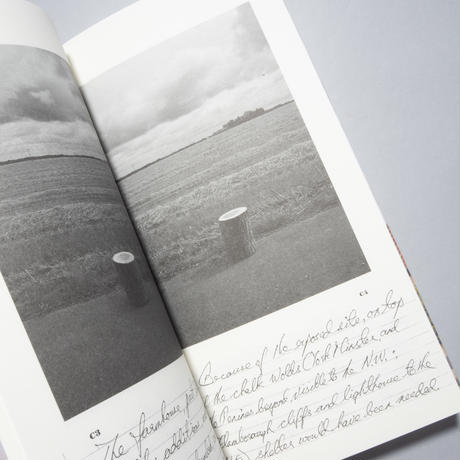 C3
The farmhouse
addition
C4
Because of the exposed site, on top
the chalk Wolds (York Minster, and
the Penines beyond, visible to the N.W.;
Flamborough cliffs and lighthouse to the
shelter would have been needed